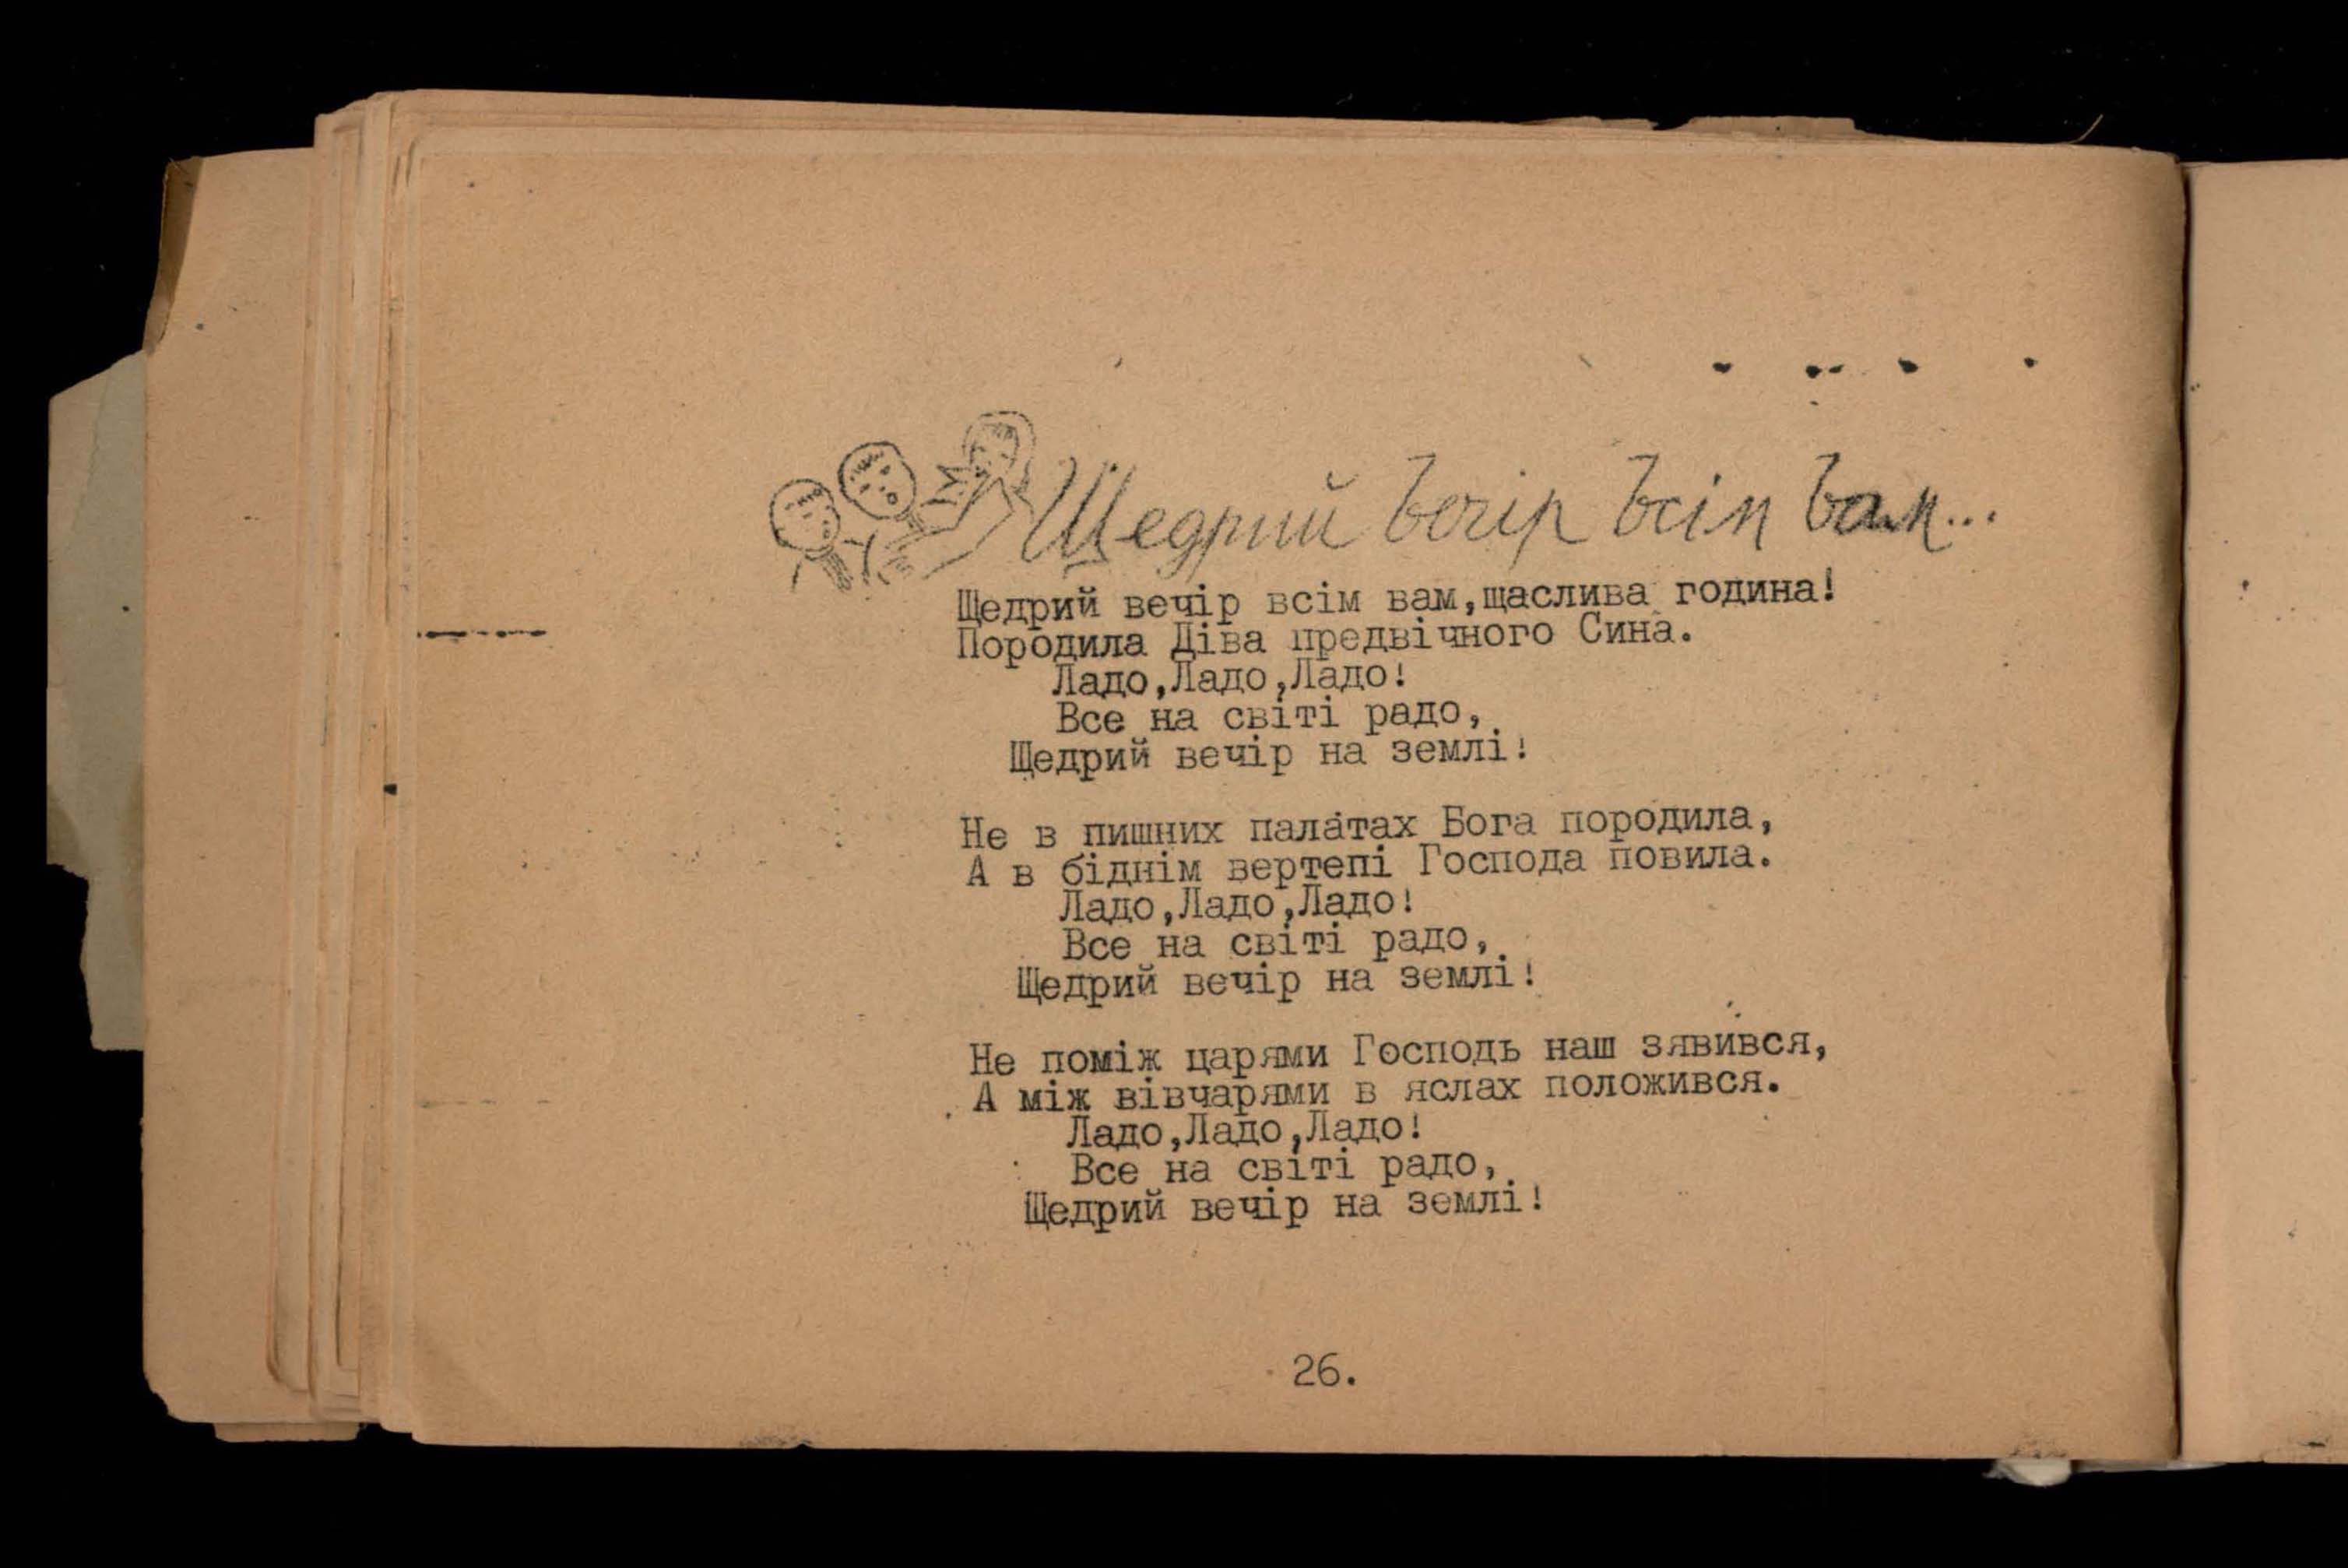 Щедрий вечір всім вам...
Щедрий вечір всім вам,щаслива година!
Породила Діва предвічного Сина.
Ладо,Ладо,Ладо!
Все на світі радо,
Щедрий вечір на землі!
Не в пишних палатах Бога породила,
А в біднім вертепі Господа повила.
Ладо,Ладо,Ладо!
Все на світі радо,
Щедрий вечір на землі!
Не поміж царями Господь наш зявився,
А між вівчарями в яслах положився.
Ладо,Ладо,Ладо!
Все на світі радо,
Щедрий вечір на землі!
26.